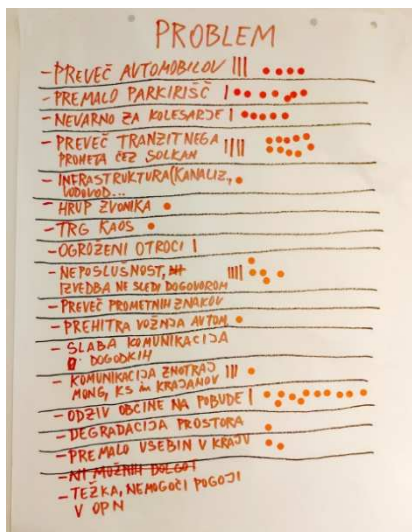 PROBLEM
- PREVEČ AVTOMOBILOV |||
- PREMALO PARKIRIŠČ |
- NEVARNO ZA KOLESARJE |
- PREVEČ TRANZITNEGA ||||
PROMETA ČEZ SOLKAN
- INFRASTRUKTURA (KANALIZ.,
VODOVOD...
- HRUP ZVONIKA
- TRG KAOS
- OGROŽENI OTROCI |
- NEPOSLUŠNOST, ||||
IZVEDBA NE SLEDI DOGOVOROM
- PREVEČ PROMETNIH ZNAKOV
- PREHITRA VOŽNJA AVTOM.
- SLABA KOMUNIKACIJA
O DOGODKIH
- KOMUNIKACIJA ZNOTRAJ |||
MONG, KS in KRAJANOV
- ODZIV OBČINE NA POBUDE |
- DEGRADACIJA PROSTORA
- PREMALO VSEBIN V KRAJU
- TEŽKA, NEMOGOČI POGOJI
V OPN